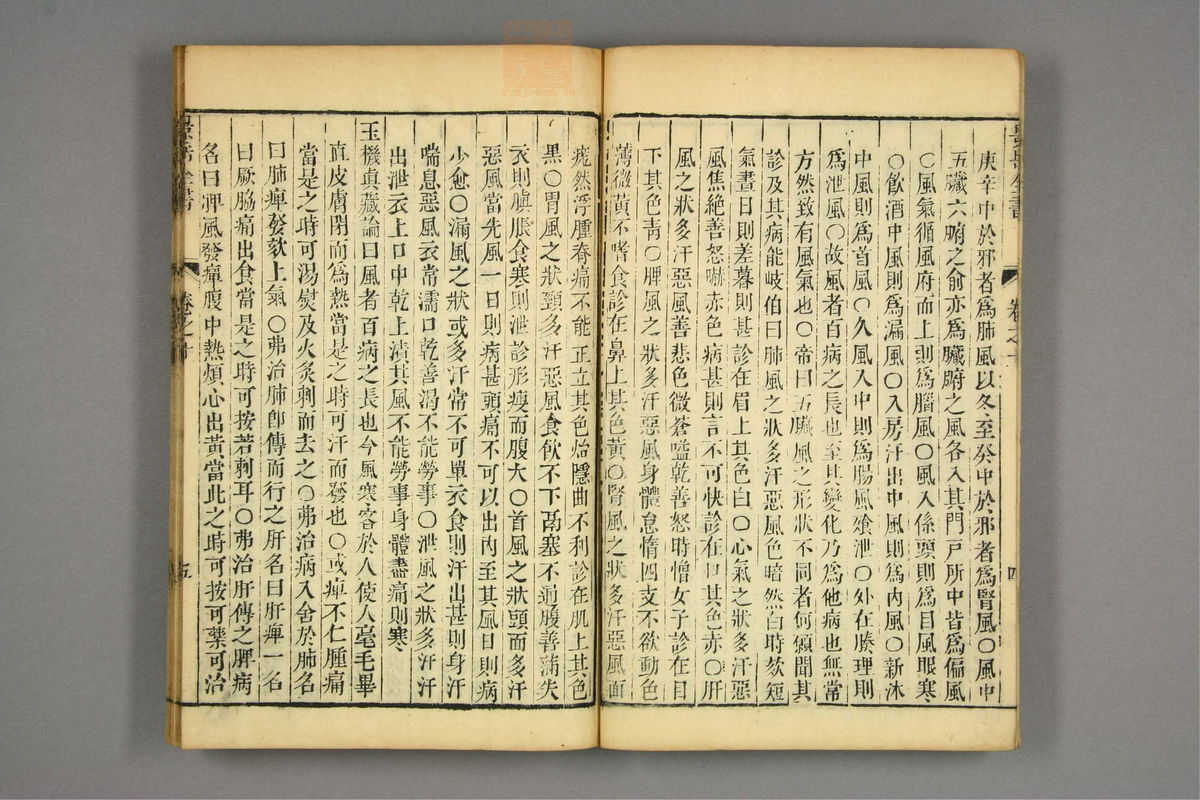 庚辛中於邪者爲肺風以冬至癸中於邪者爲腎風〇風中
五臟六腑之俞亦爲臟腑之風各入其門戸所中皆爲偏風
〇風氣循風府而上則爲腦風〇風入係頭則爲目風眼寒
〇飲酒中風則爲漏風〇入房汗出中風則爲內風〇新沐
中風則爲首風〇久風入中則爲腸風飱泄〇外在腠理則
爲泄風〇故風者百病之長也至其變化乃爲他病也無常
方然致有風氣也〇帝曰五臟風之形狀不同者何願聞其
診及其病能岐伯曰肺風之狀多汗惡風色皏然白時欬短
氣晝日則差暮則甚診在眉上其色白〇心氣之狀多汗惡
風焦絶善怒嚇赤色病甚則言不可快診在口其色赤〇肝
風之狀多汗惡風善悲色微蒼嗌乾善怒時憎女子診在目
下其色靑〇脾風之狀多汗惡風身體怠惰四支不欲動色
薄微黃不嗜食診在鼻上其色黃〇腎風之狀多汗惡風面
痝然浮腫脊痛不能正立其色炲隱曲不利診在肌上其色
黑〇胃風之狀頸多汗惡風食飮不下鬲塞不通腹善滿失
衣則䐜脹食寒則泄診形瘦而腹大〇首風之狀頭面多汗
惡風當先風一日則病甚頭痛不可以出內至其風日則病
少愈〇漏風之狀或多汗常不可單衣食則汗出甚則身汗
喘息惡風衣常濡口乾善渴不能勞事〇泄風之狀多汗汗
出泄衣上口中乾上漬其風不能勞事身體盡痛則寒
玉機眞藏論曰風者百病之長也今風寒客於人使人毫毛畢
直皮膚閉而爲熱當是之時可汗而發也〇或痺不仁腫痛
當是之時可湯熨及火灸刺而去之〇弗治病入舍於肺名
曰肺痺發欬上氣〇弗治肺卽傳而行之肝名曰肝痺一名
曰厥脇痛出食當是之時可按若刺耳〇弗治肝傳之脾病
名曰脾風發癉腹中熱煩心出黃當此之時可按可藥可浴
景岳全書
卷之十
四
景岳全書
卷之十
五